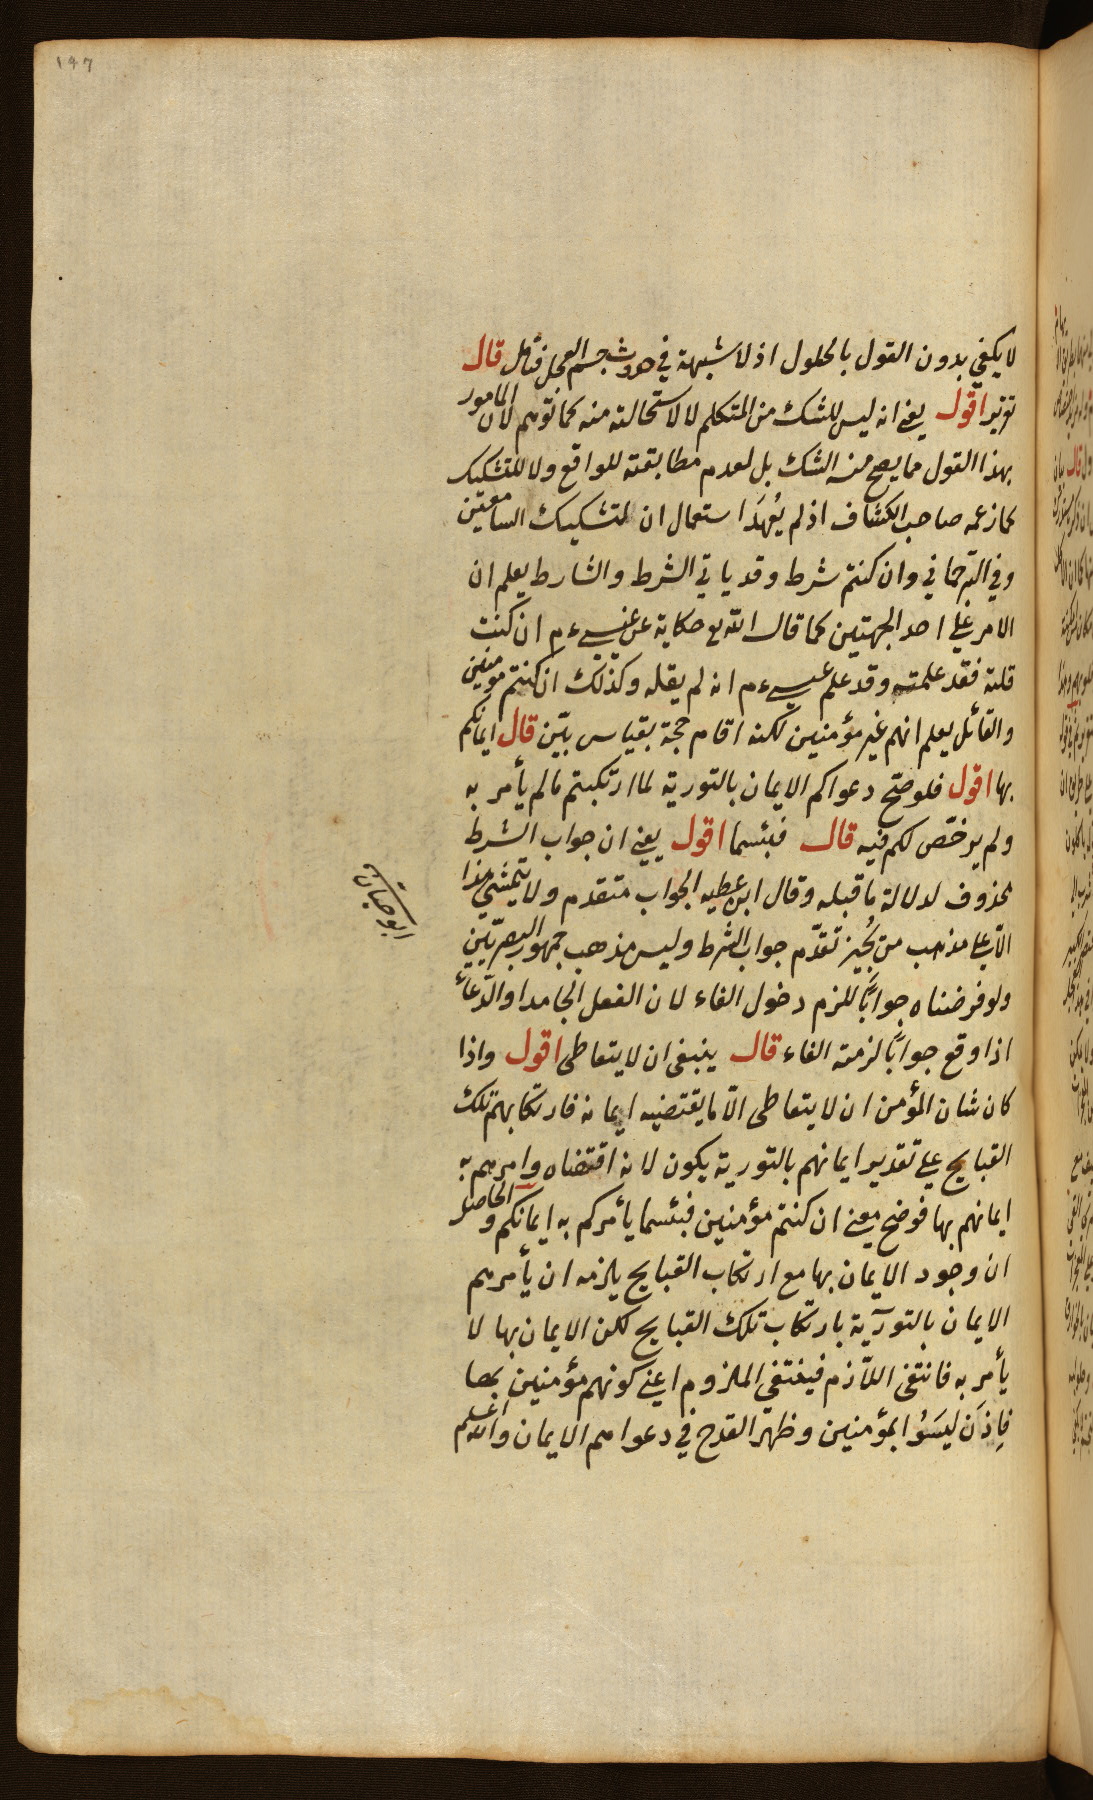 ١٩٧
لا يكفي بدون القول بالحلول اذ لا شبهة في حدوث جسم العجل فتأمل قال
تقرير اقول يعني انه ليس للشك من المتكلم لا لاستحالته منه كما توهم لان المامور
بهذا القول مما يصح منه الشك بل لعدم مطابقته للواقع ولا للتشكيك
كما زعمه صاحب الكشاف اذ لم يُعهَد استعمال ان لتشكيك السامعين
وفي وان كنتم شرط وقد ياتي الشرط والشارط يعلم ان
الامر على احد الجهتين كما قال الله تع حكاية عن عيسى ءم ان كنت
قلته فقد علمته وقد علم عيسى ءم انه لم يقله وكذلك ان كنتم مومنين
والقائل يعلم انهم غير مؤمنين لكنه اقام حجة بقياس بيّن قال ايمانكم
بها اقول فلو صحّ دعواكم الايمان بالتورية لما ارتكبتم ما لم يأمر به
ولم يرخّص لكم فيه قال فبئسما اقول يعني ان جواب الشرط
محذوف لدلالة ما قبله وقال ابن عطيه الجواب متقدم ولا يتمشى هذا
الّا على مذهب من يُجيز تقدّم جواب الشرط وليس مذهب جمهور البصريّين
ابو حيان
ولو فرضناه جوابًا للزم دخول الفاء لان الفعل الجامد او الدّعاء
اذا وقع جوابًا لزمته الفاء قال ينبغي ان لا يتعاطى اقول واذا
كان شان المؤمن ان لا يتعاطى الّا ما يقتضيه ايمانه فارتكابهم تلك
القبايح على تقدير ايمانهم بالتورية يكون لانه اقتضاه وامرهم به
ايمانهم بها فوضح معنى ان كنتم مؤمنين فبئسما يأمركم به ايمانكم والحاصل
ان وجود الايمان بها مع ارتكاب القبايح يلزمه ان يأمرهم
الايمان بالتورٓية بارتكاب تلك القبايح لكن الايمان بها لا
يأمر به فانتفى اللّازم فينتفي الملزوم اعني كونهم مؤمنين بها
فإذَن ليسَوُا بمؤمنين وظهر القدح في دعواهم الايمان والله اعلم